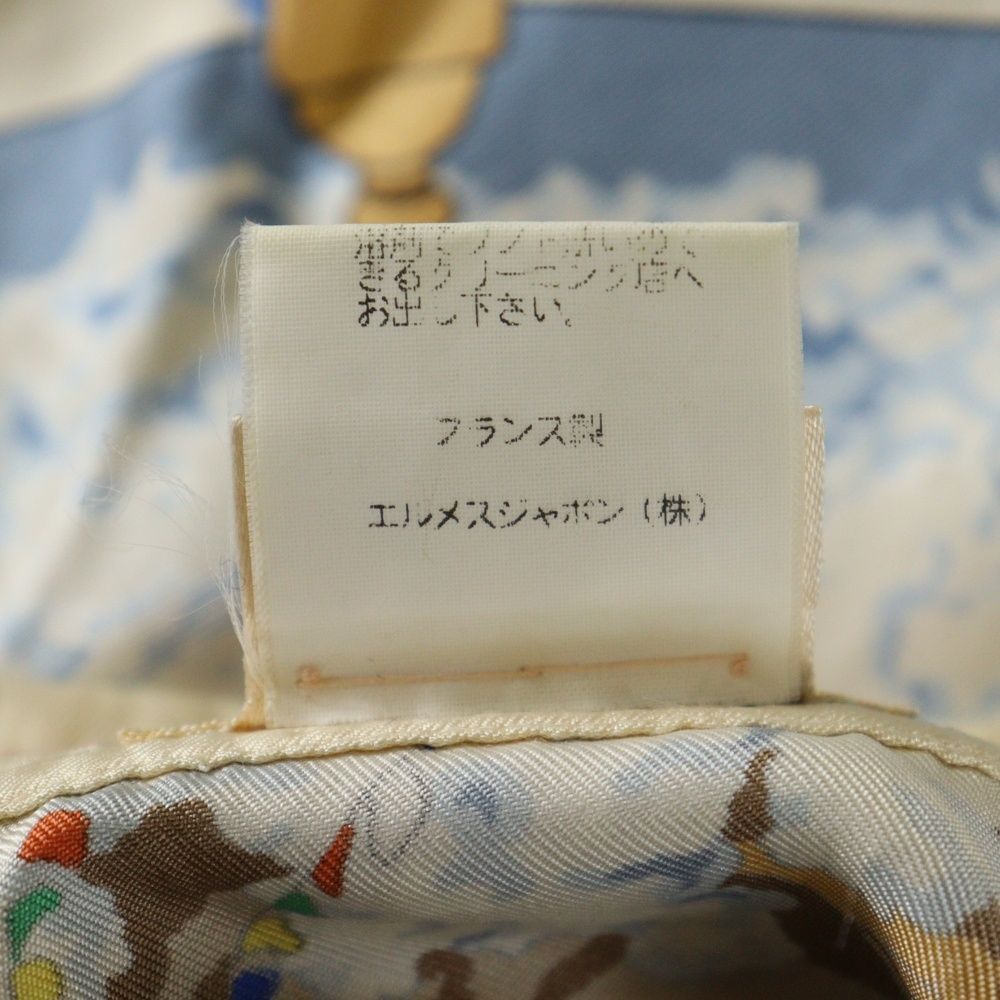 きるクリーニング店へ
お出し下さい。
フランス製
エルメスジャポン(株)